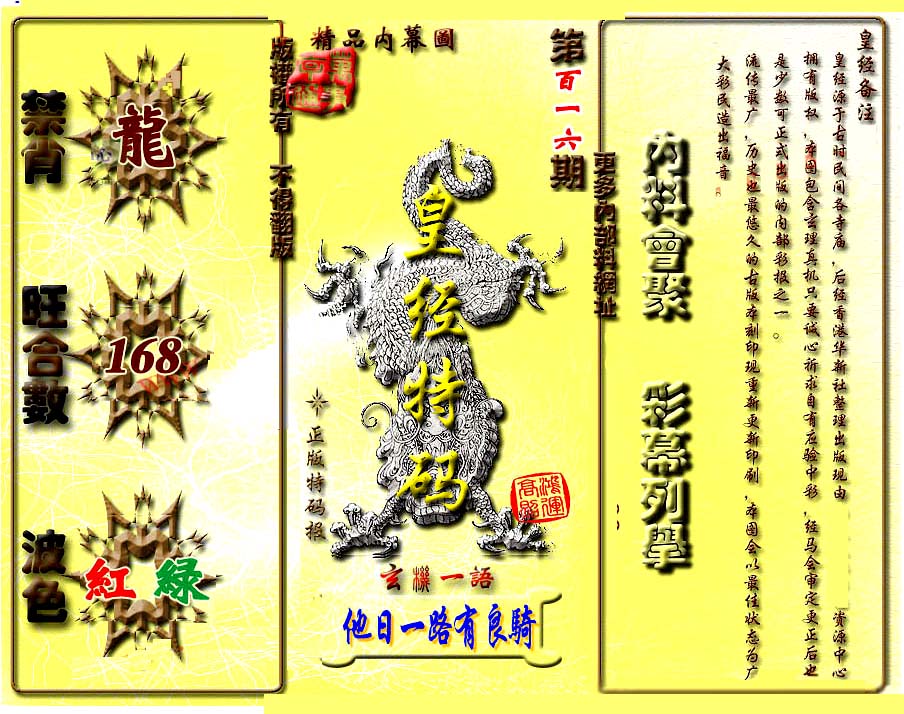 禁肖
龍
旺合數
168
波色
紅 綠
版權所有 不得翻版
精品內幕圖
第百一六期
皇经特码
正版特码报
鴻運
高照
玄機一語
他日一路有良騎
更多內部料網址
內料會聚 彩幕列舉
皇经备注
皇经源于古时民间各寺庙，后经香港华新社整理出版现由 资源中心
拥有版权，本图包含玄理真机只要诚心祈求自有应验中彩，经马会审定更正后也
是少数可正式出版的内部彩报之一。
流传最广，历史也最悠久的古版本刻印现重新更新印刷，本图会以最佳状态为广
大彩民造出福音